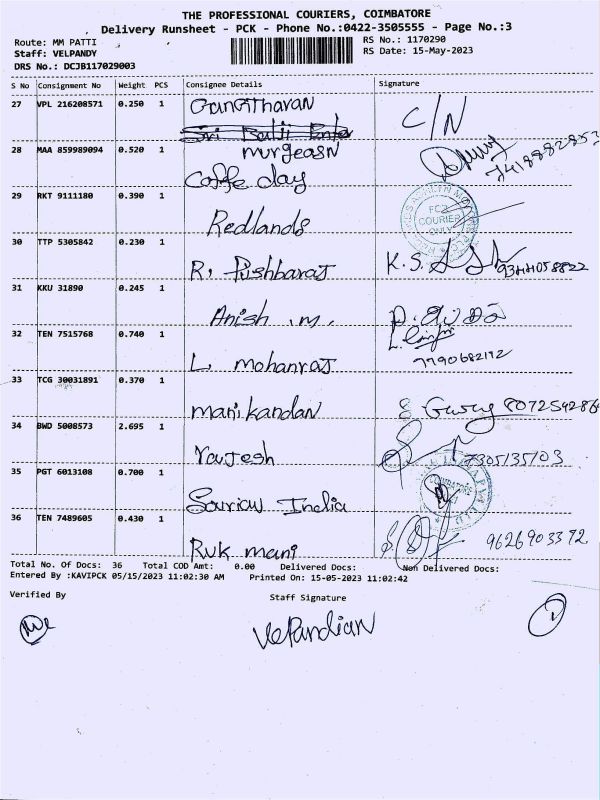 THE PROFESSIONAL COURIERS, COIMBATORE
Delivery Runsheet - PCK - Phone No.:0422-3505555 - Page No.:3
Route: MM PATTI
RS No.: 1170290
Staff: VELPANDY
RS Date: 15-May-2023
DRS No.: DCJB117029003
S No Consignment No Weight PCS Consignee Details Signature
27 VPL 216208571 0.250 1 Gangitharan C/N
28 MAA 859989094 0.520 1 murgeasn 7418882853
Coffe day
29 RKT 9111180 0.390 1 Redlands
FCJ COURIER ONLY
30 TTP 5305842 0.230 1 R. Pushbaraj K.S. 9344058822
31 KKU 31890 0.245 1 Anish .m.
32 TEN 7515768 0.740 1 L. mohanraj 7790682172
33 TCG 30031891 0.370 1 manikandan 8072542864
34 BWD 5008573 2.695 1 Rajesh 7305135703
35 PGT 6013108 0.700 1 India
COIMBATORE
36 TEN 7489605 0.430 1 Rukmani 9626903372
Total No. Of Docs: 36 Total COD Amt: 0.00 Delivered Docs: Non Delivered Docs:
Entered By :KAVIPCK 05/15/2023 11:02:30 AM Printed On: 15-05-2023 11:02:42
Verified By
Staff Signature
VelPandian